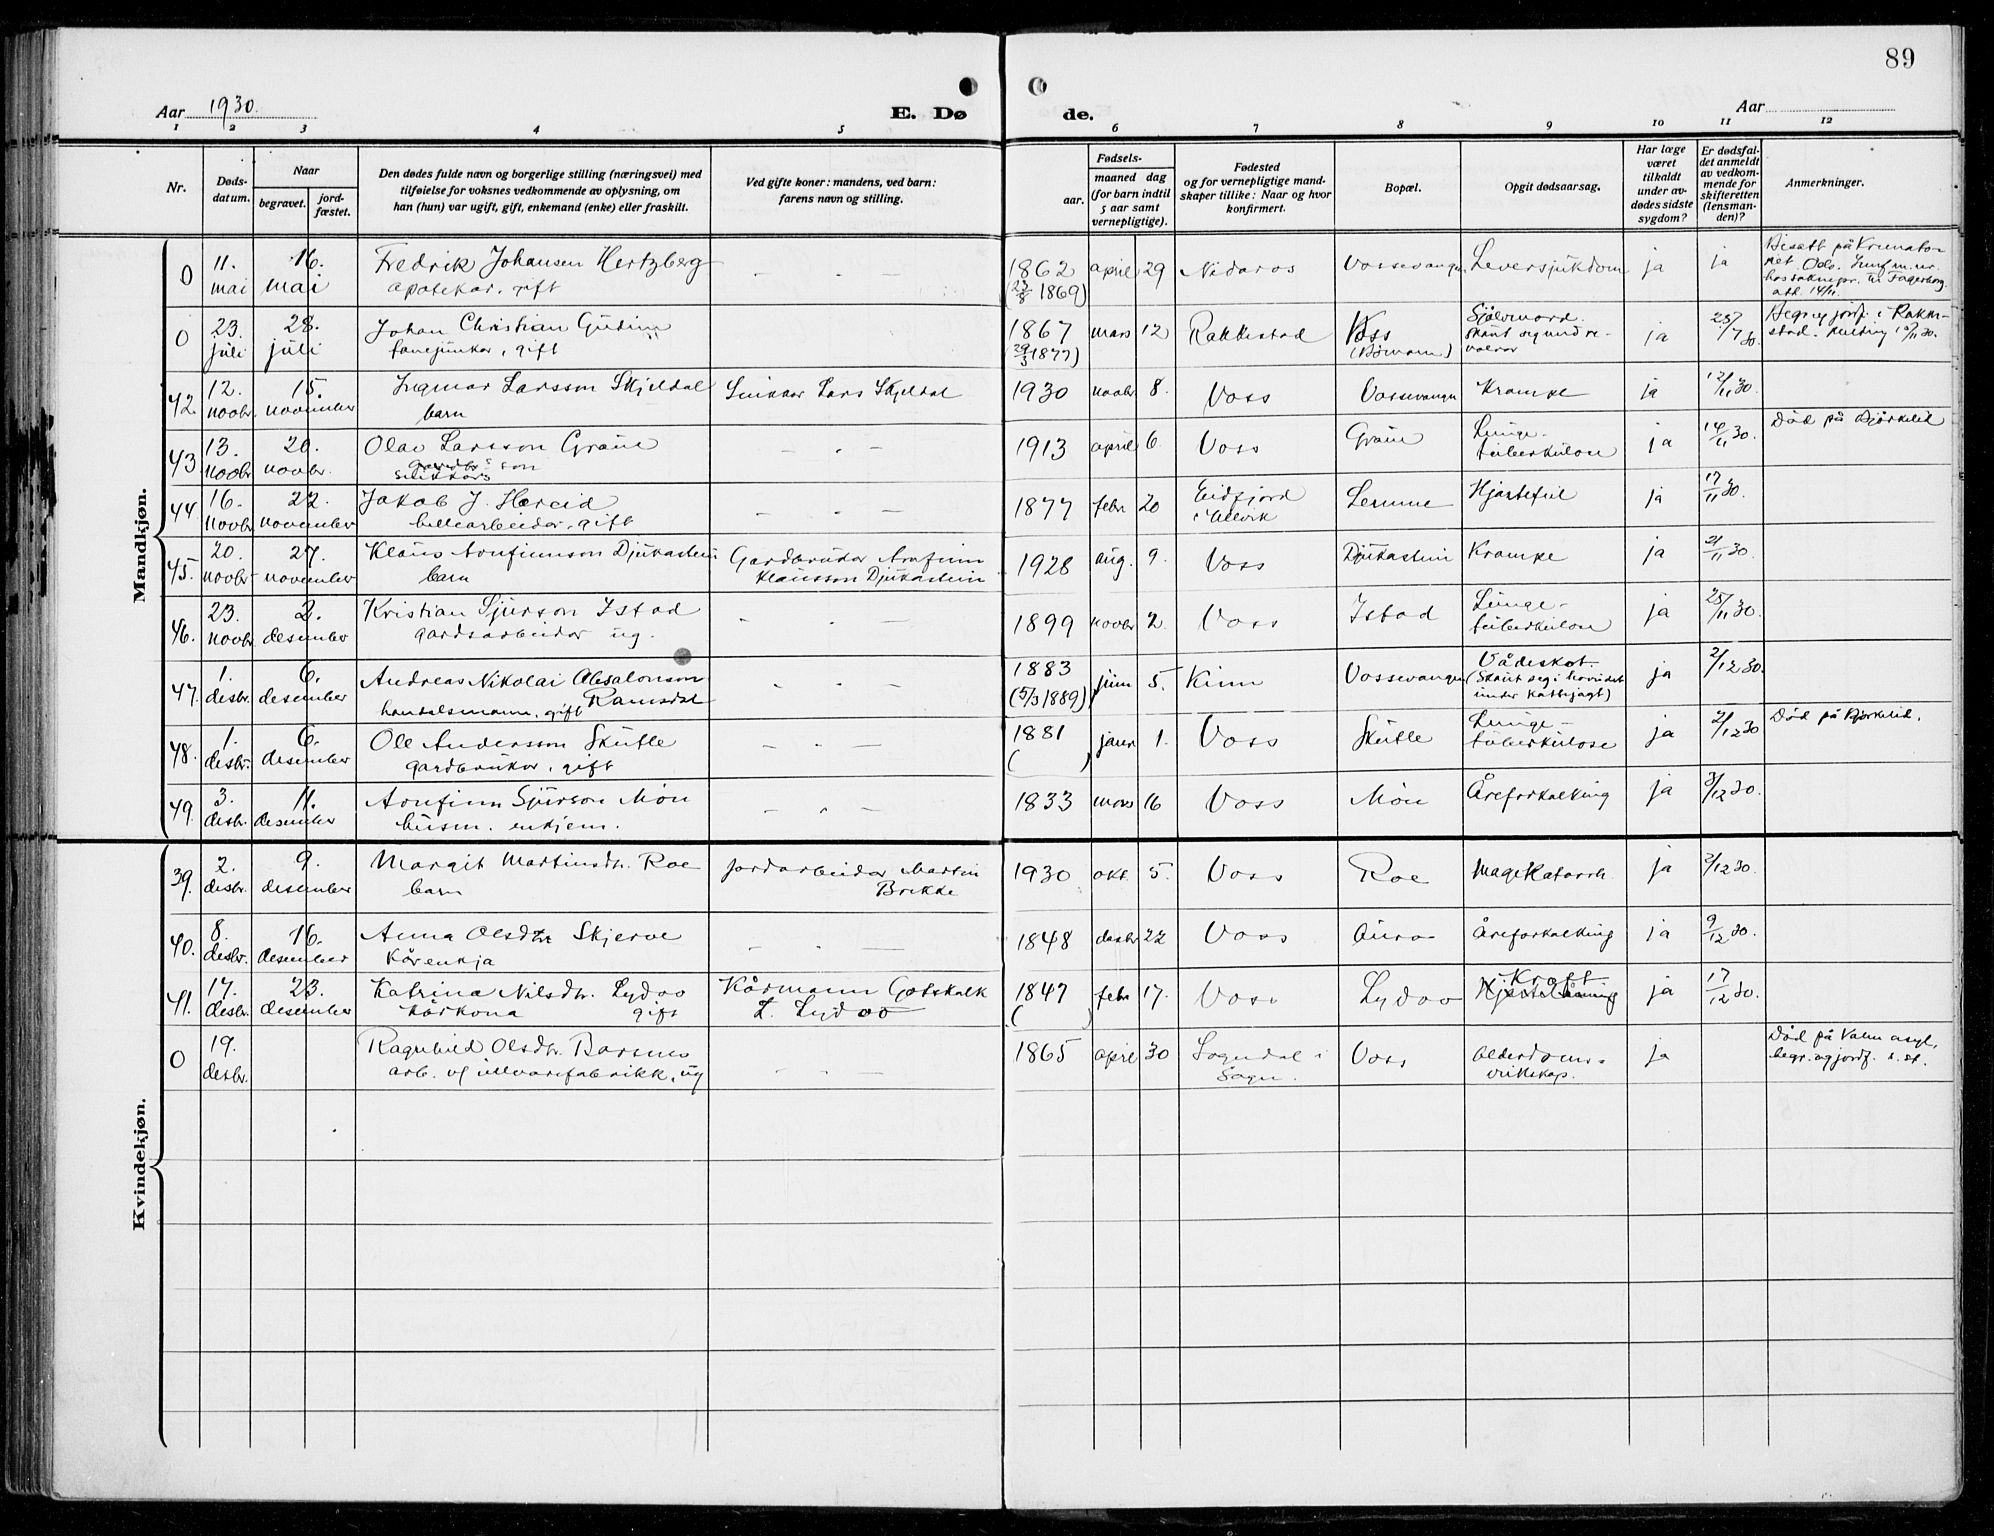 89
Aar 1930.
E. Dø de.
Aar
1 2 3 4 5 6 7 8 9 10 11 12
Nr.
Døds-
datum.
Naar
begravet.
jord-
fæstet.
Den dødes fulde navn og borgerlige stilling (næringsvei) med
tilføielse for voksnes vedkommende av oplysning, om
han (hun) var ugift, gift, enkemand (enke) eller fraskilt.
Ved gifte koner: mandens, ved barn:
farens navn og stilling.
Fødsels-
aar.
maaned dag
(for barn indtil
5 aar samt
vernepligtige).
Fødested
og for vernepligtige mand-
skaper tillike: Naar og hvor
konfirmert.
Bopæl.
Opgit dødsaarsag.
Har læge
været
tilkaldt
under av-
dødes sidste
sygdom?
Er dødsfal-
det anmeldt
av vedkom-
mende for
skifteretten
(lensman-
den)?
Anmerkninger.
Mandkjøn.
0 11. mai 16. mai Fredrik Johansen Hertzberg - - - 1862 april 29 Nidaros Vossevangen Leversjukdom ja ja Bisatt på Kremato-
apotekar, gift (23/8 1869) riet Oslo.
0 23. juli 28. juli Johan Christian Gudim 1867 mars 12 Rakkestad Voss Sjølvmord. ja 25/7 30
fanejunkar, gift (29/3 1877) (Bømoen) skaut seg und re-
volver
42. 12. novbr. 15. november Ingmar Larsson Skjeldal Snikkar Lars Skjeldal 1930 novbr 8. Voss Vossevangen Krampe ja 12/11 30.
barn
43. 13. novbr. 20. novbr. Olav Larsson Graue - - - 1913 april 6. Voss Graue Lunge- ja 14/11 30. Død på Bjørkelid
gardbr. son tuberkulose
snikkars
44. 16. novbr. 22. november Jakob J. Hereid - - - 1877 febr 20 Eidfjord Lemme Hjartefeil ja 17/11 30.
gift i Ulvik
45. 20. novbr. 27. november Klaus Arnfinnson Djukastein Gardbrukar Arnfinn 1928 aug. 9. Voss Djukastein Krampe ja 21/11 30.
barn Klausson Djukastein
46. 23. novbr. 2. desember Kristian Sjurson Istad - - - 1899 novbr 2. Voss Istad Lunge- ja 25/11 30.
gardsarbeidar ug. tuberkulose
47. 1. desbr. 6. desember Andreas Nikolai Absalonson - - - 1883 juni 5. Kinn Vossevangen Vådeskot. ja 2/12 30.
handelsmann, gift Ramsdal (5/3 1889) (Skaut seg i hovudet
under kattejagt)
48. 1. desbr. 6. desember Ole Andersson Skutle - - - 1881 januar 1. Voss Skutle Lunge- ja 2/12 30 Død på Bjørkelid.
gardbrukar, gift ( ) tuberkulose
49. 3. desbr. 11. desember Arnfinn Sjurson Møn - - - 1833 mars 16 Voss Møn Åreforkalking ja 3/12 30.
husm. enkjem.
Kvindekjøn.
39. 2. desbr. 9. desember Margit Martinsdtr. Roe Jordarbeidar Martin 1930 okt. 5. Voss Roe Magekatarrh. ja 2/12 30.
barn Brekke
40. 8. desbr. 16. desember Anna Olsdtr Skjerve - - - 1848 desbr 22 Voss Åreforkalking ja 9/12 30.
kårenkja
41. 17. desbr. 23. desember Katrina Nilsdtr. Lydvo Kårmann Gotskalk 1847 febr 17. Voss Lydvo Kreft ja 17/12 30.
kårkona gift L. Lydvo ( )
0 19. desbr. Ragnhild Olsdtr. Barsnes - - - 1865 april 30 Sogndal i Voss Alderdoms- ja Død på Valen asyl,
arb. v/ ullvarefabrikk, ug Sogn. veikskap. begr. og jordf. s. st.